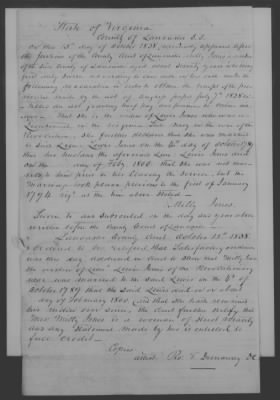 State of Virginia
County of Lancaster S.S.
On this 15th day of October 1838, personally appeared before
the Justices of the County Court of Lancaster, Milly Jones, resident
of the said County of Lancaster aged about Seventy years who being
first duly Sworn according to law doth on her oath make the
following declaration in order to obtain the benefit of the pro-
vision made by the act of Congress passed July 7. 1838 en-
titled An act granting half pay and pensions to certain wi-
dows. That she is the widow of Lewis Jones who was a
Lieutenant in the Virginia Line in the war of the
Revolution. She further declares that she was married
to Said Lewis Jones on the 6th day of October 1789
that her husband the aforesaid Lewis Jones died
on the day of Feby 1800. that She was not mar-
ried to him prior to his leaving the Service, but the
marriage took place previous to the first of January
1794. viz. at the time above Stated.
Milly Jones.
Sworn to and Subscribed on the day and year above
written before the County Court of Lancaster.
Lancaster County Court October 15th 1838.
Ordered to be certified that Satisfactory evidence
was this day adduced in Court to Shew that Milly Jones
the widow of Lieut. Lewis Jones of the Revolutionary
war, was married to the said Lewis on the 6th of
October 1789 that the Said Lewis died on or about
day of February 1800. and that She hath remained
his widow ever since, the Court further certify that
Mrs Milly Jones is a woman of Strict veracity
and any Statement made by her is entitled to
full Credit.
Copies
attest Ro. T. Dunaway DC